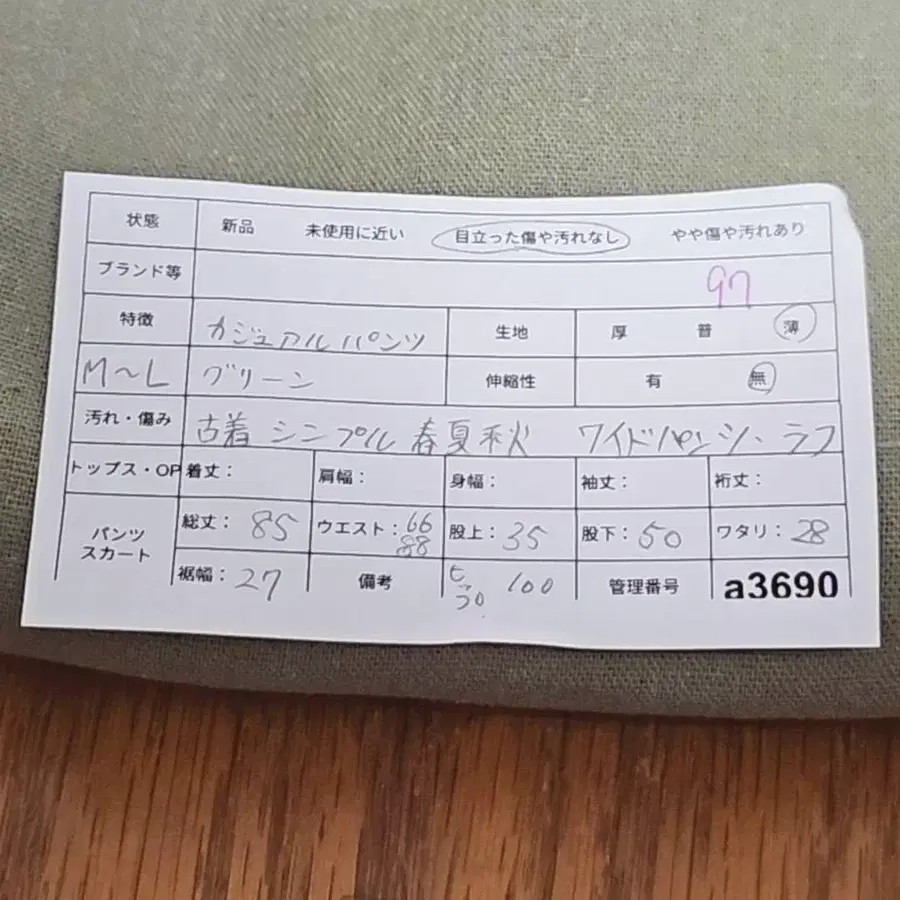 状態 新品 未使用に近い 目立った傷や汚れなし やや傷や汚れあり
ブランド等 97
特徴 カジュアルパンツ 生地 厚 普 薄
M～L グリーン 伸縮性 有 無
汚れ・傷み 古着 シンプル 春夏秋 ワイドパンツ、ラフ
トップス・OP 着丈： 肩幅： 身幅： 袖丈： 裄丈：
パンツ スカート 総丈：85 ウエスト：66 88 股上：35 股下：50 ワタリ：28
裾幅：27 備考 ヒップ 100 管理番号 a3690